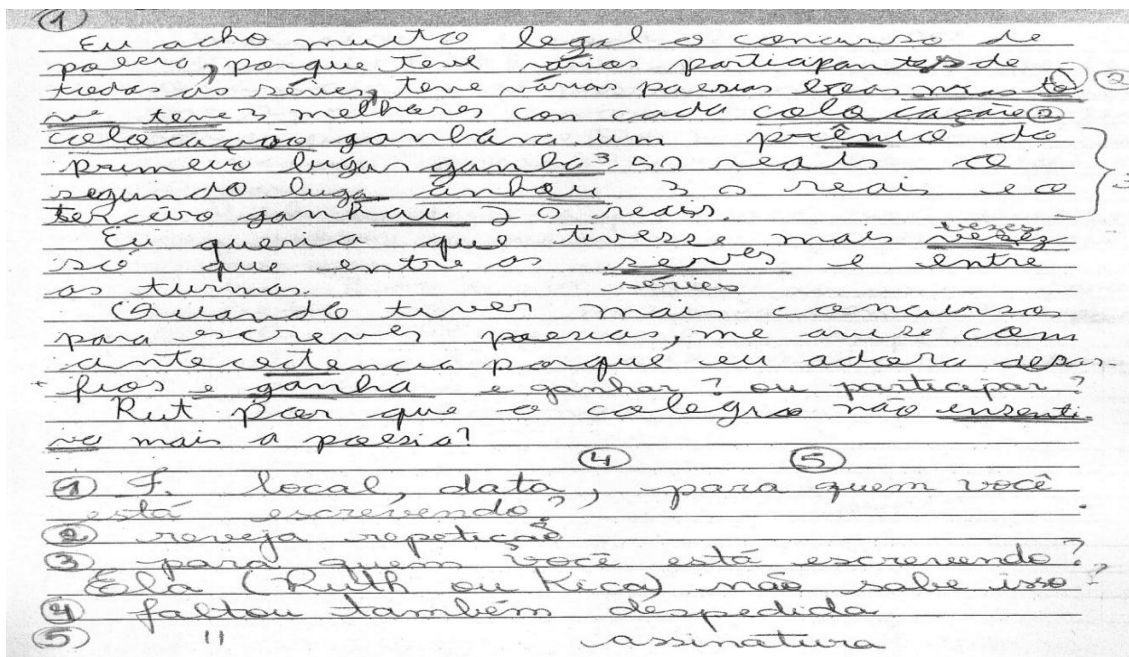 ①
Eu acho muito legal o concurso de
poesia, porque teve vários participantes de
todas as séries, teve várias poesias boas mas te ②
ve teve 3 melhores con cada colocação ②
colocação ganhava um prêmio do
primeiro lugar ganha 50 reais o
segundo luga anhou 30 reais e o 3
terceiro ganhou 20 reais.
Eu queria que tivesse mais vezes
só que entre as serves e entre
as turmas. séries
Quando tiver mais concursos
para escrever poesias, me avise com
antecedencia porque eu adoro desa
fios e ganha e ganhar? ou participar?
Rut por que o colegio não insenti
va mais a poesia?
④ ⑤
① F. local, data, para quem você
está escrevendo?
② reveja repetição
③ para quem você está escrevendo?
Ela (Ruth ou Keca) não sabe isso?
④ faltou também despedida
⑤ " assinatura